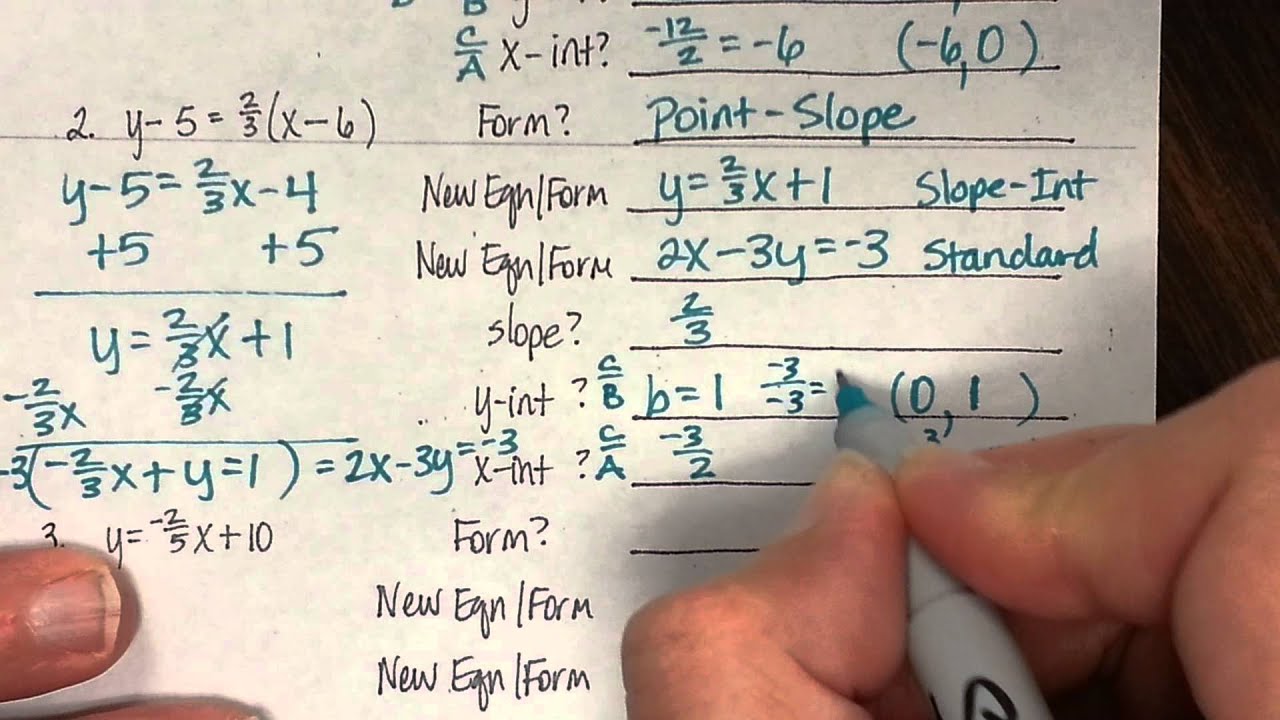 B y
C/A x-int? -12/2 = -6 (-6,0)
2. y-5 = 2/3(x-6) Form? Point-Slope
y-5 = 2/3x-4 New Eqn/Form y = 2/3x+1 Slope-Int
+5 +5 New Eqn/Form 2x-3y=-3 Standard
y = 2/3x+1 slope? 2/3
-2/3x -2/3x y-int? C/B b=1 -3/-3 = (0,1)
-3(-2/3x+y=1) = 2x-3y=-3 x-int? C/A -3/2
3. y = -2/5x+10 Form?
New Eqn/Form
New Eqn/Form